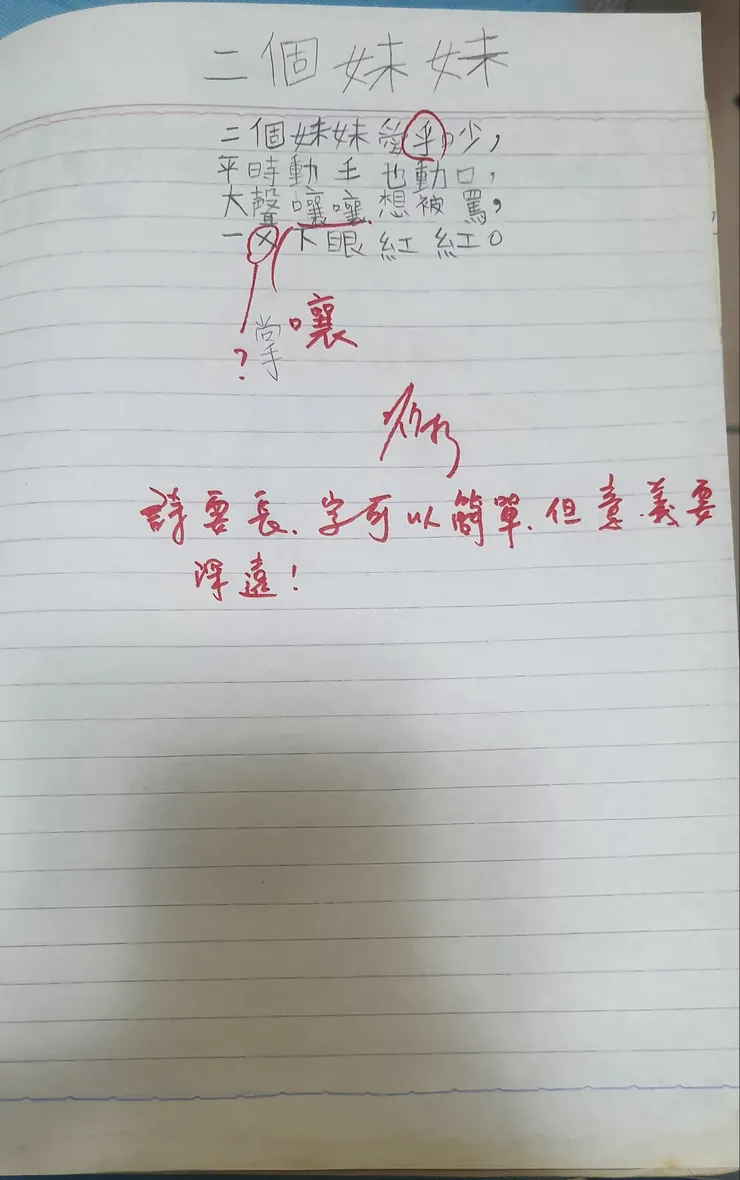 二個妹妹
二個妹妹愛乎吵,
平時動手也動口,
大聲嚷嚷想被罵,
一ㄨ下眼紅紅。
掌
嚷
?
詩要長、字可以簡單、但意義要
深遠!